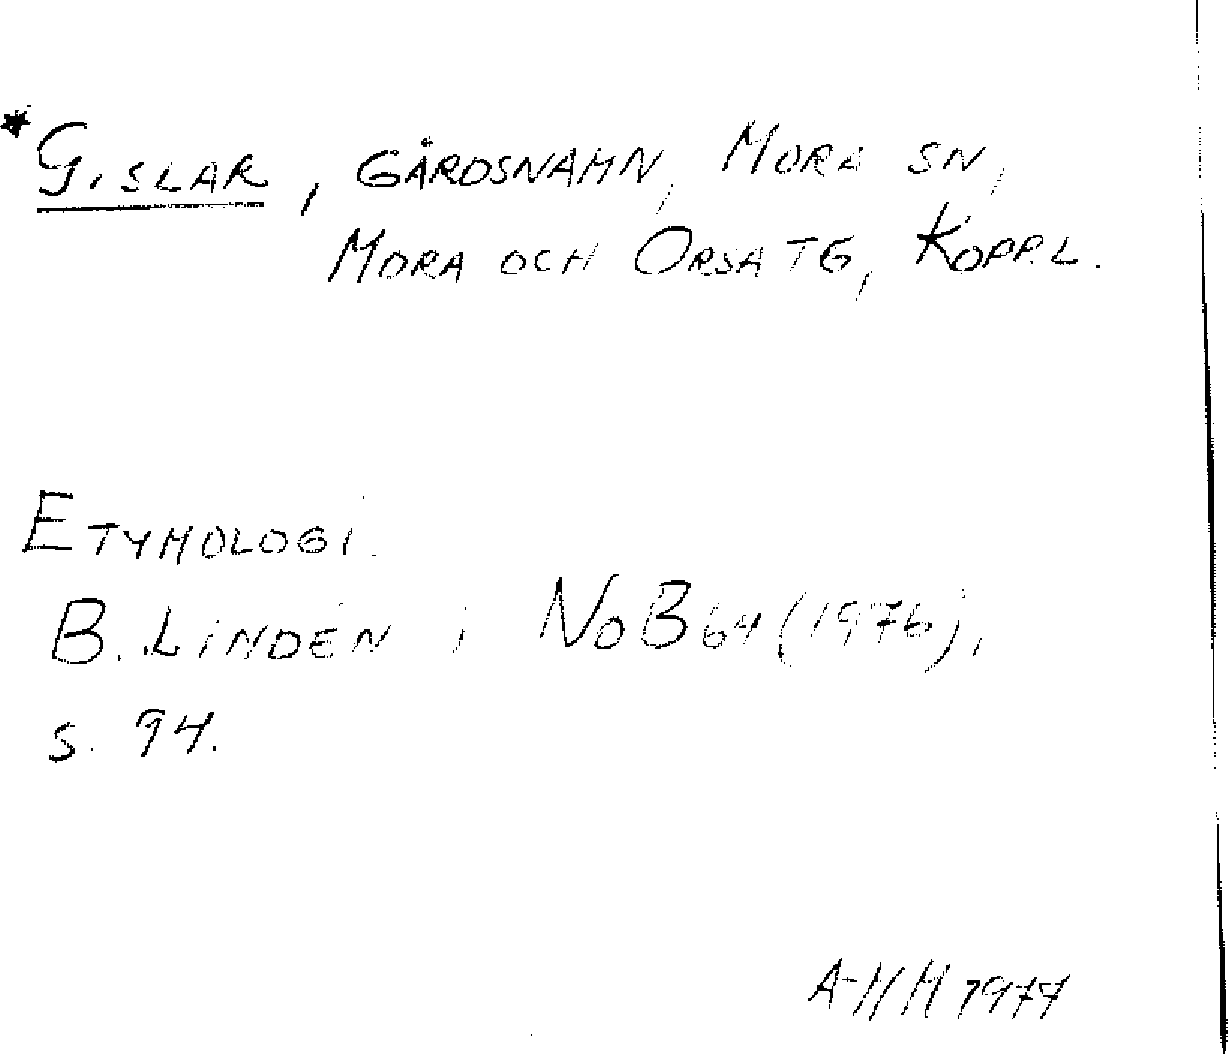 *GISLAR, GÅRDSNAMN, MORA SN,
MORA OCH ORSA TG, KOPP.L.
ETYMOLOGI.
B. LINDÉN i NoB 64 (1976),
s. 94.
A-HM 1977